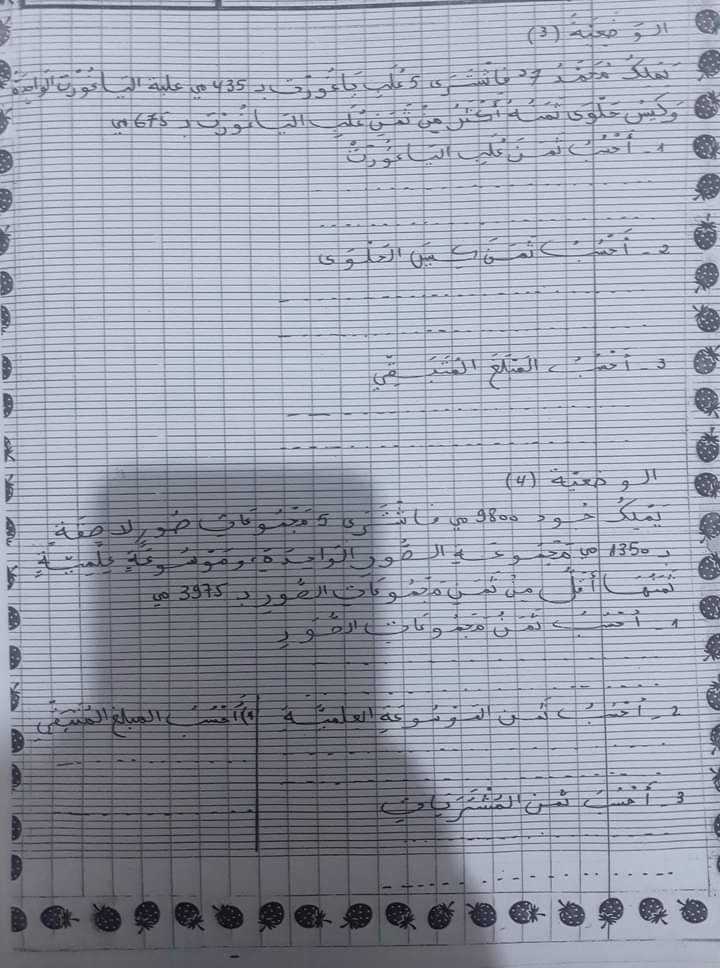 الوَضعيّة (3)
يَمْلِكُ مُحَمَّدُ 27 فَاشْتَرَى 5 عُلَبِ يَاغُورْت بـ 435 مي علبة اليَاغُورْت الوَاحِدَة
وَكِيسَ حَلْوَى ثَمَنُهُ أَكْثَرُ مِنْ ثَمَنِ عُلَبِ اليَاغُورْت بـ 675 مي
1 - أَحْسُبُ ثَمَنَ عُلَبِ اليَاغُورْت
2 - أَحْسُبُ ثَمَنَ كِيسِ الحَلْوَى
3 - أَحْسُبُ المَبْلَغَ المُتَبَقِّي
الوضعيّة (4)
يَمْلِكُ 9800 مي فاشْتَرَى 5 مَجْمُوعَاتِ صُوَرٍ لاصِقَةٍ
بـ 1350 مي مَجْمُوعَةِ الصُّوَرِ الوَاحِدَةِ، وَمَوْسُوعَةٍ عِلْمِيّةٍ
ثَمَنُهَا أَقَلُّ مِنْ ثَمَنِ مَجْمُوعَاتِ الصُّوَرِ بـ 3975 مي
1 - أَحْسُبُ ثَمَنَ مَجْمُوعَاتِ الصُّوَرِ
2 - أَحْسُبُ ثَمَن المَوْسُوعَةِ العِلْمِيَّةِ
4) أَحْسُبُ المبلغ المُتَبَقِّي
3 - أَحْسُبُ ثَمَنَ المُشْتَرَيَاتِ